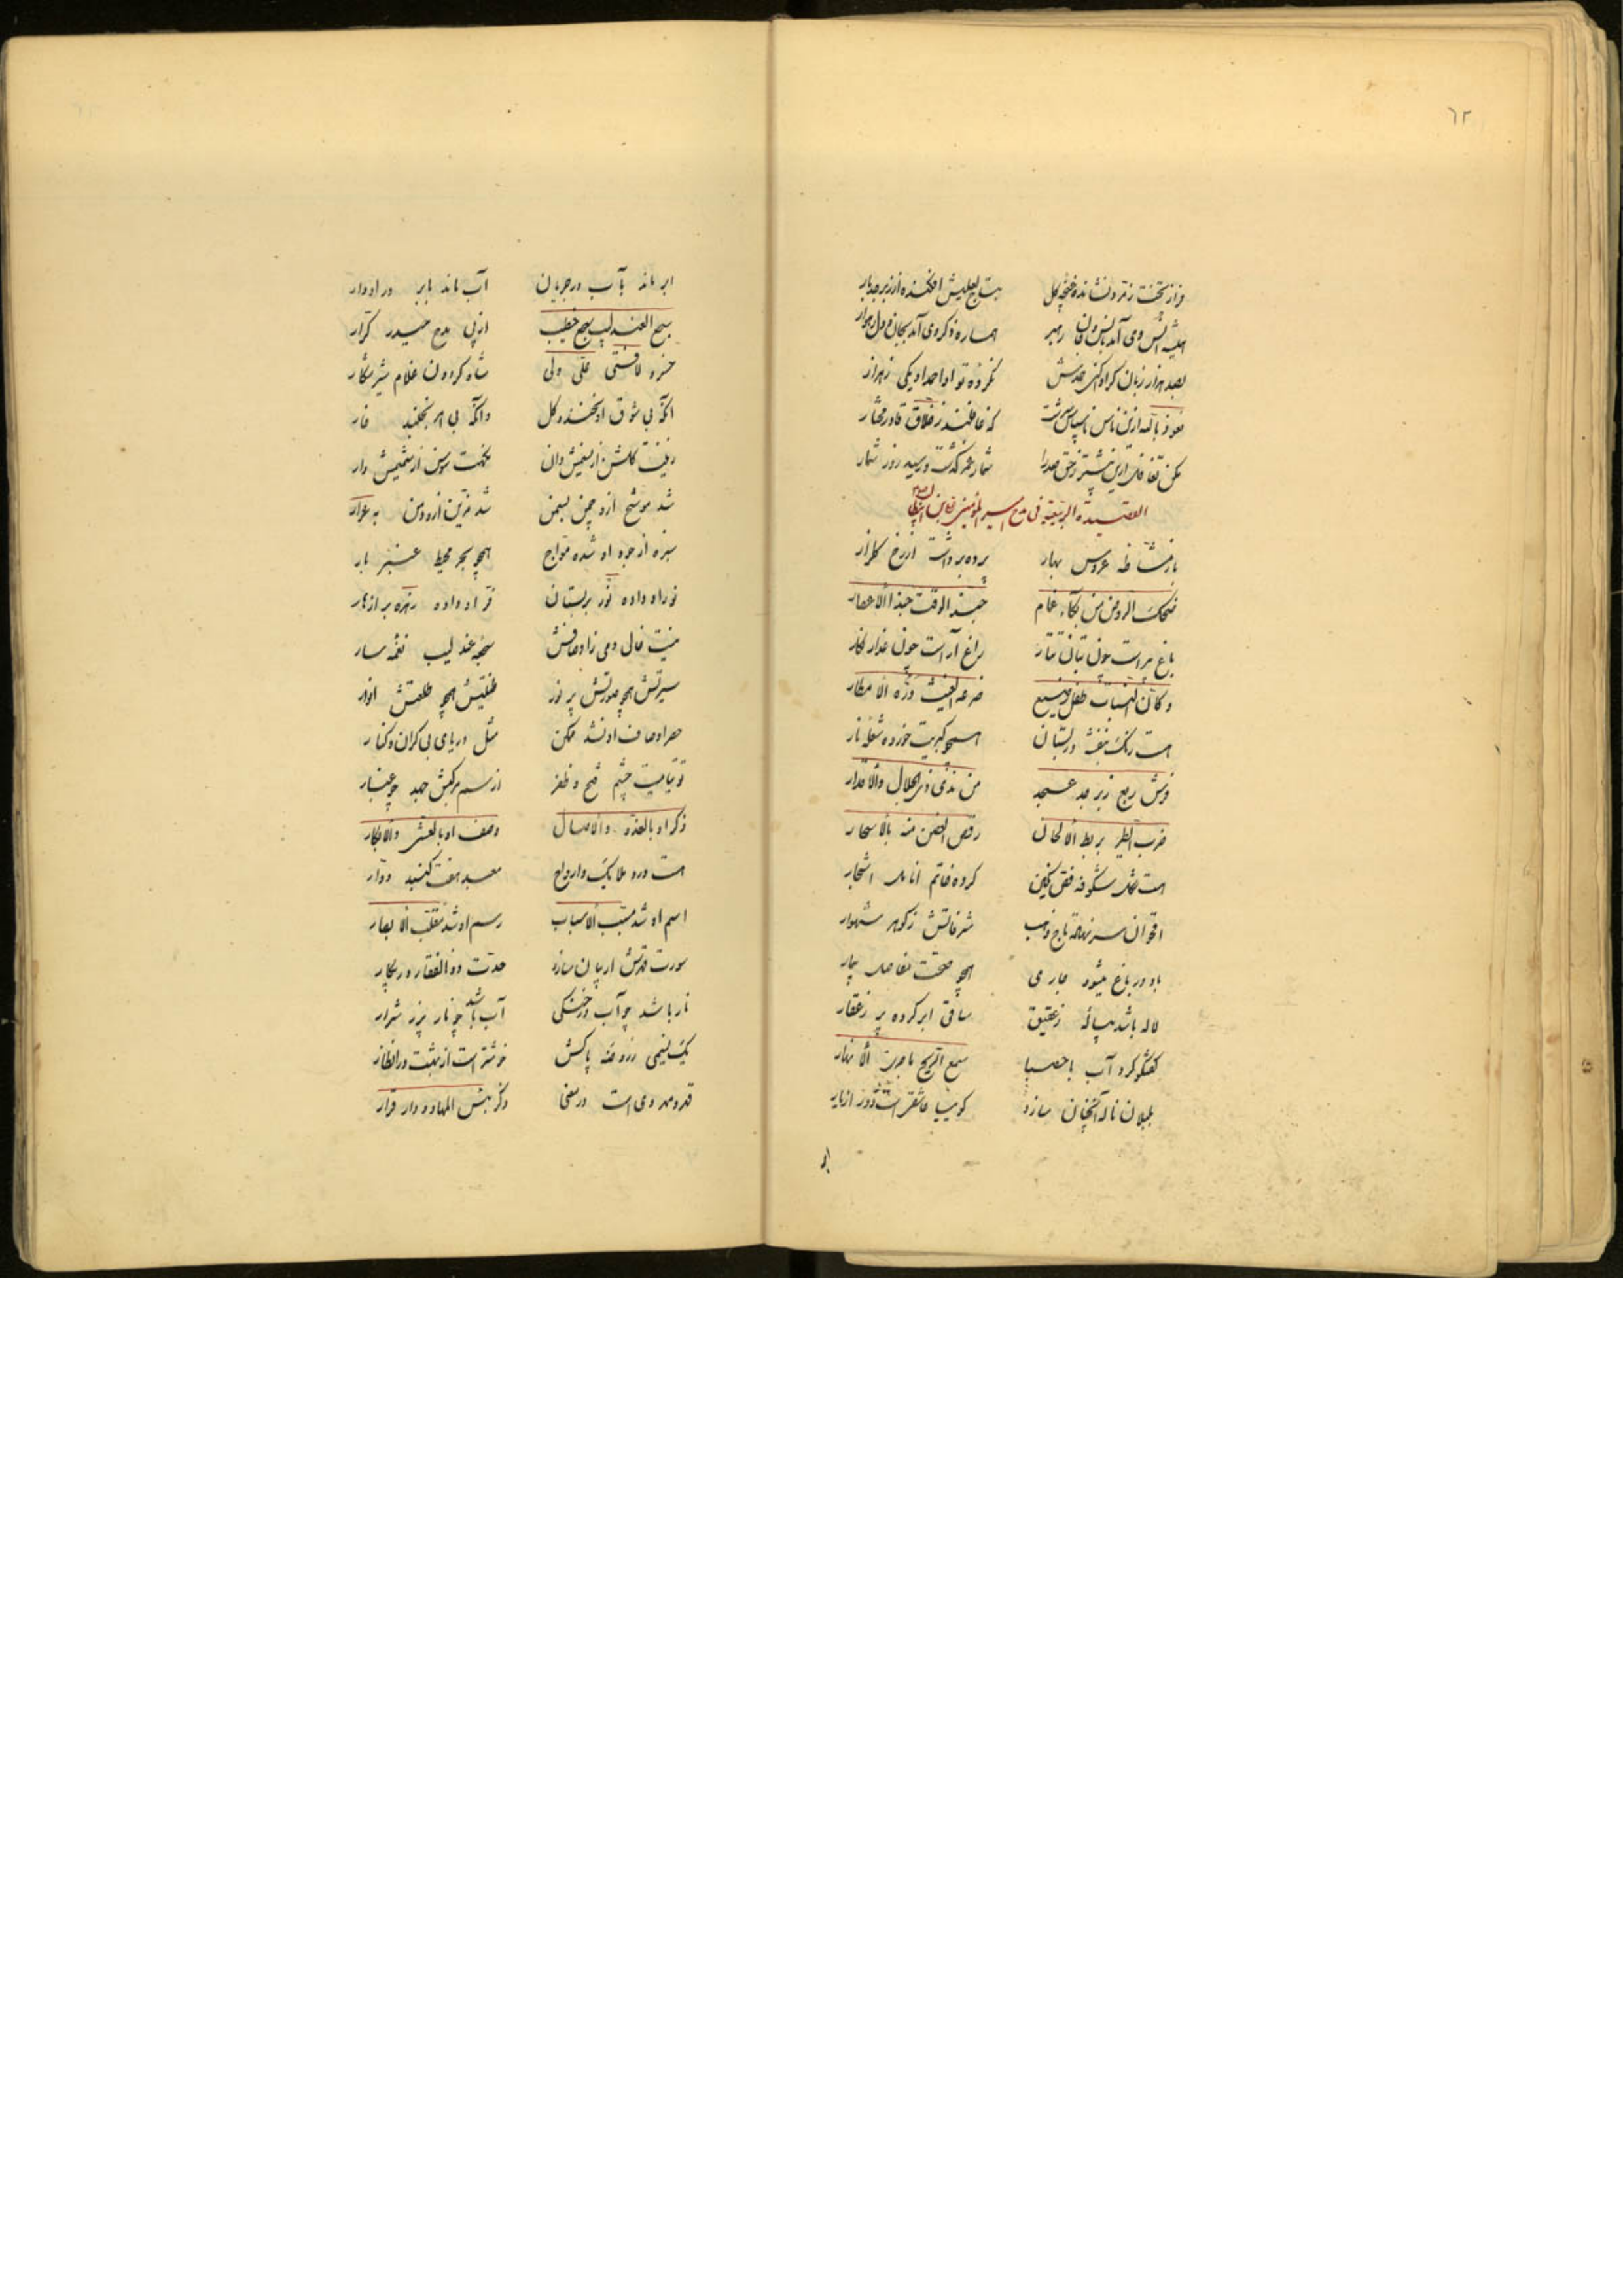 ٦٢
فراز تخت زمرد نشانده غنچه گل بتاج لعلیش افکنده از زبرجد بار
همیشه انس وی آمد بانس و جان رهبر هماره ذکر وی آمد بجان و دل
بصد هزار زبان گر ادا کنی حمدش نکرده تو ادا حمد او یکی ز هزار
نعوذ بالله ازین ناس ناسپاس سرشت که غافلند ز خلاق قادر مختار
مکن تغافل ازین بیشتر ز حق صدرا شمار عمر گذشت و رسید روز شمار
القصیده الربیعیه فی مدح امیر المؤمنین
باز مشاطه عروس بهار پرده برداشت از رخ گلزار
ضحک الروض من بکاء غمام حبذا الوقت حبذا الاعصار
باغ پیراست چون بتان تتار راغ آراست چون عذار نگار
و کان النبات طفل رضیع ضرعه الغیث درّه الامطار
هست رنگ بنفشه در بستان همچو کبریت خورده شعله نار
فرش ربع زبرجد عسجد من ندی ذی الجلال والاقدار
ضرب الطیر بربط الالحان رقص الغصن منه بالاسحار
هست شکل شکوفه فص نگین کرده خاتم انامل اشجار
اقحوان سر نهفته تاج ذهب شرفاتش ز گوهر شهوار
باد در باغ میشود جاری همچو صحت مفاصل بیمار
لاله باشد پیاله ز عقیق ساقی ابر کرده پر ز عقار
گفتگو کرد آب با حصبا سمع الریح ما جرت الانهار
بلبلان ناله آنچنان سازد گوییا عاشق است دور از یار
ابر
ابر ماند بآب در جریان آب ماند بابر در ادوار
سجع العندلیب سجع خطیب از پی مدح حیدر کرار
خسرو لافتی علی ولی شاه گردون غلام شیر شکار
آنکه بی شوق او نخندد گل وانکه بی امر نخلند خار
زینت گلشن از نعیمش دان نکهت سوسن از شمیمش دار
شد موشح ازو چمن بسمن شد مزین ازو دمن به عرار
سبزه از جود او شده مواج همچو بحر محیط عنبر بار
نور او داده نور بر بستان فر او داده زهره بر ازهار
میمنت فال دمی ز اوصافش سجه عندلیب نغمه سار
سیرتش همچو صورتش پر نور طینتش همچو طلعتش انوار
حصر اوصاف او نشد ممکن مثل دریای بی کران و کنار
توتیائیست چشم فتح و ظفر از سم مرکبش جهد چو غبار
ذکر او بالغدو والاصال وصف او بالعشی والابکار
هست ورد ملایک و ارواح معبد هفت گنبد دوار
اسم او شد مسبب الاسباب رسم او شد مقلب الابصار
سورت قدرتش ار بیان سازد حدت ذو الفقار در پیکار
نار باشد چو آب در خنکی آب باشد چو نار پر ز شرار
یک نسیمی ز روضه پاکش خوشتر است از بهشت در انظار
قد و مهد وی است در معنی ذکر بئس المهاد و دار قرار